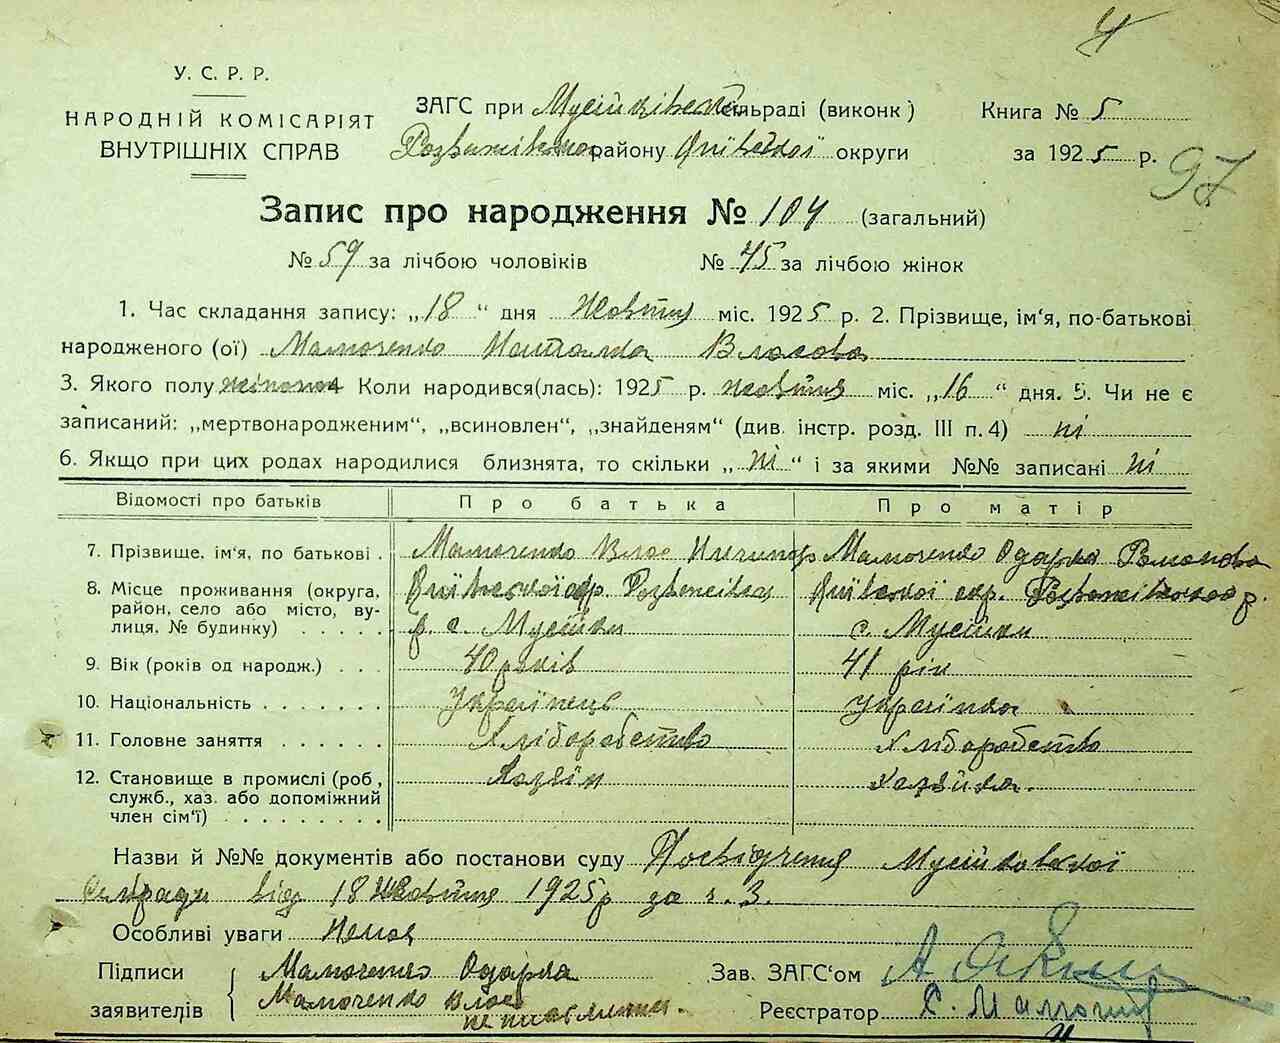 4
У. С. Р. Р.
НАРОДНІЙ КОМІСАРІЯТ
ВНУТРІШНІХ СПРАВ
ЗАГС при Мусійківській сільраді (виконк)
району Київської округи
Книга № 5
за 1925 р.
97
Запис про народження № 104 (загальний)
№ 59 за лічбою чоловіків № 45 за лічбою жінок
1. Час складання запису: „18“ дня Жовтня міс. 1925 р. 2. Прізвище, ім'я, по-батькові
народженого (ої) Мамоченко Наталка Власова
3. Якого полу жіночої Коли народився(лась): 1925 р. жовтня міс. „16“ дня. 5. Чи не є
записаний: „мертвонародженим“, „всиновлен“, „знайденям“ (див. інстр. розд. III п. 4) ні
6. Якщо при цих родах народилися близнята, то скільки „ні“ і за якими №№ записані ні
Відомості про батьків Про батька Про матір
7. Прізвище, ім'я, по батькові . Мамоченко Влас Ничипор Мамоченко Одарка Романова
8. Місце проживання (округа, Київської окр. Розважівська Київської окр. Розважівського р.
район, село або місто, ву- р. с. Мусійки с. Мусійки
лиця, № будинку) . . . . .
9. Вік (років од народж.) . . . 40 років 41 рік
10. Національність . . . . . . . Українець Українка
11. Головне заняття . . . . . . Хліборобство Хліборобство
12. Становище в промислі (роб, Хазяїн Хазяйка.
служб., хаз. або допоміжний
член сім'ї) . . . . . . . .
Назви й №№ документів або постанови суду Посвідчення Мусійковської
сільради від 18 Жовтня 1925 р за ч. 3.
Особливі уваги Немає
Підписи
заявителів
Мамоченко Одарка
Мамоченко Влас
не письменни.
Зав. ЗАГС'ом А.
Реєстратор С.